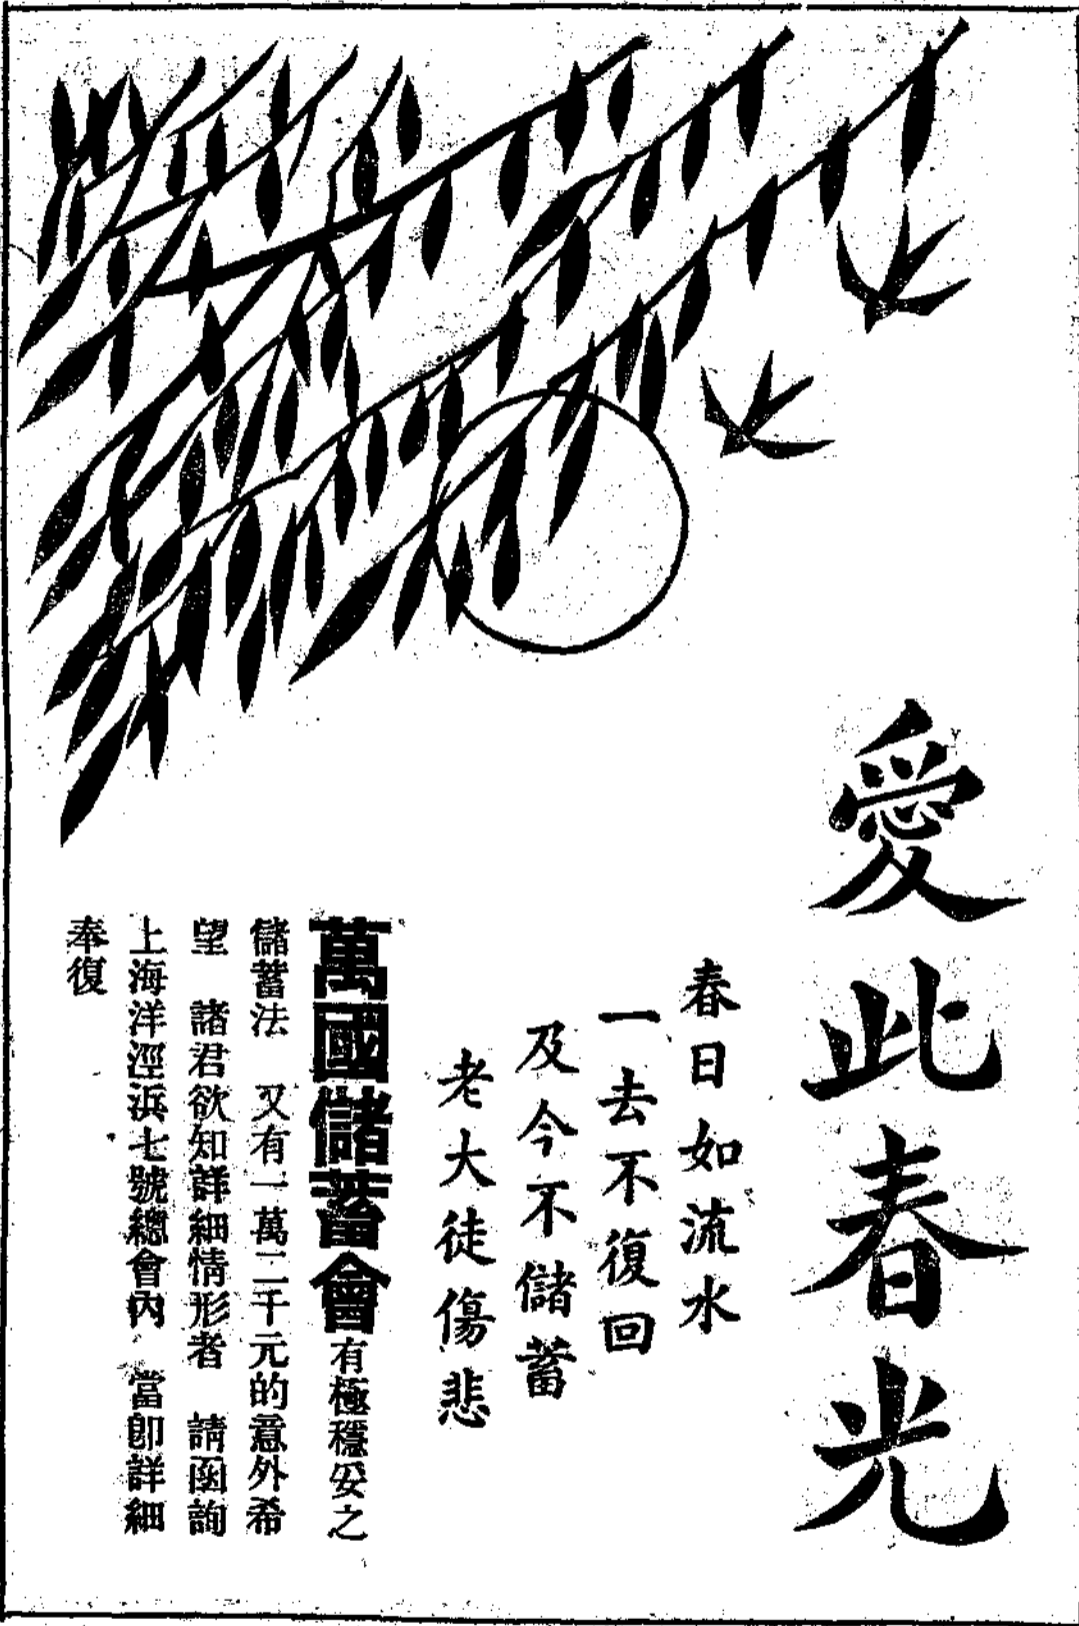 愛此春光
春日如流水
一去不復回
及今不儲蓄
老大徒傷悲
萬國儲蓄會有極穩妥之
儲蓄法　又有一萬二千元的意外希
望　諸君欲知詳細情形者　請函詢
上海洋涇浜七號總會內　當卽詳細
奉復